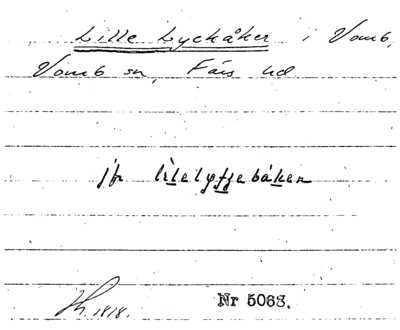 Lille Lyckåker i Vomb,
Vomb sn, Färs hd
jfr lìlelyjjebåken
1818.
Nr 5068.